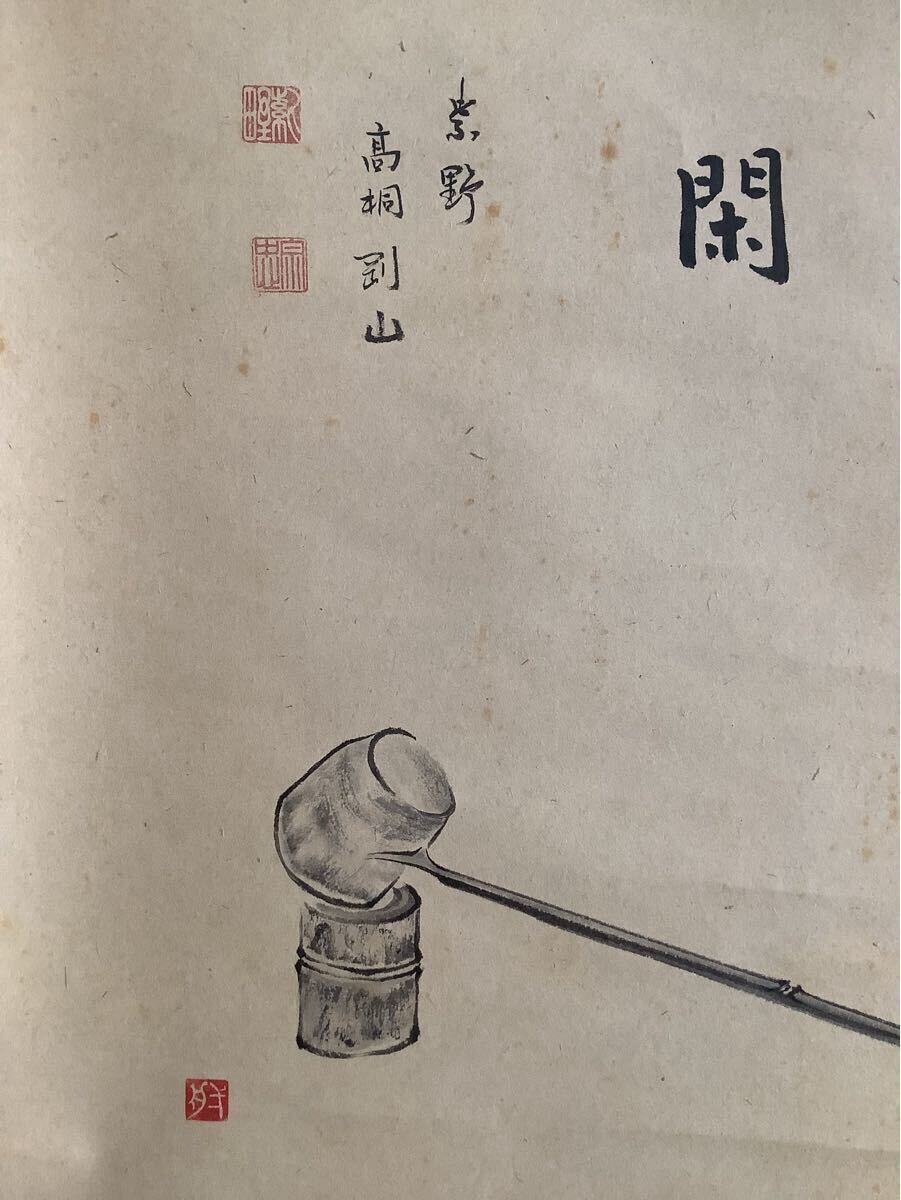 閑
紫野
高桐剛山